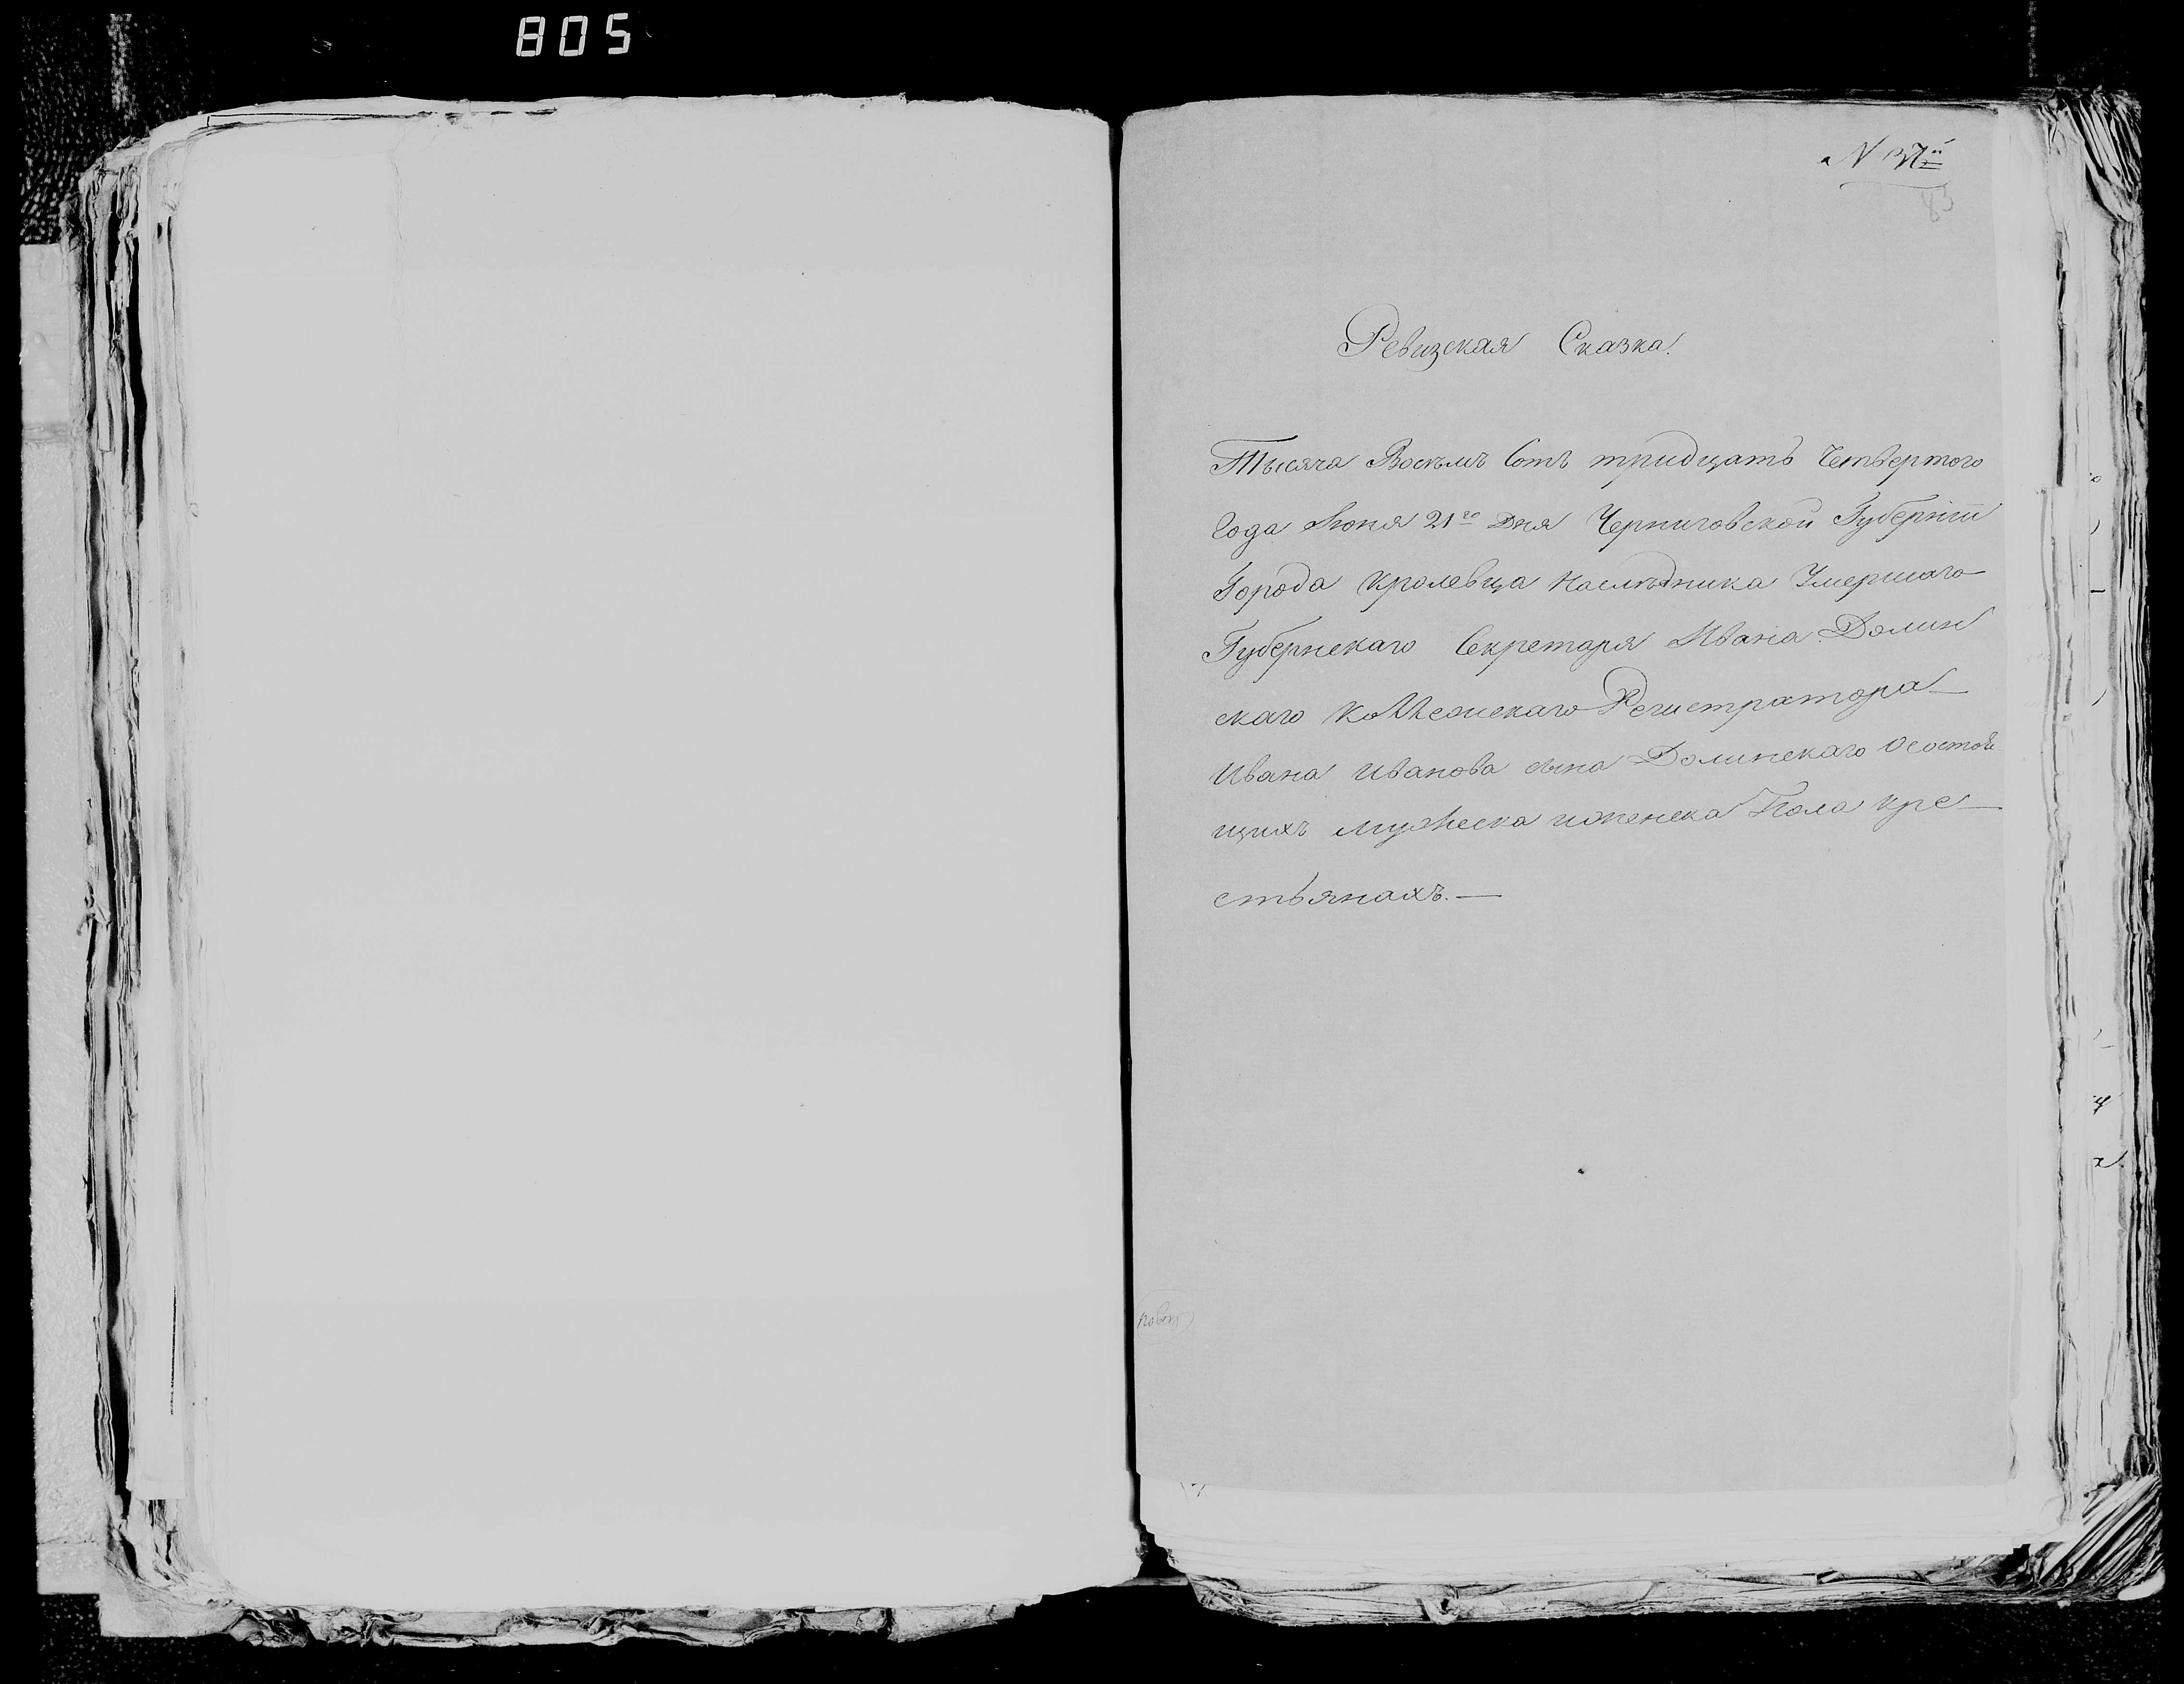 805
N 37й
83
Ревизская Сказка.
Тысяча Восемъ Сотъ тридцатъ Четвертого
Года Июня 21го Дня Черниговской Губернїи
Города Кролевца Наследника Умершаго
Губернскаго Секретаря Ивана Долин
скаго Коллежскаго Регистратора
Ивана Иванова сына Долинскаго О состоя
щихъ мужеска иженска Пола кре-
стьянахъ.—